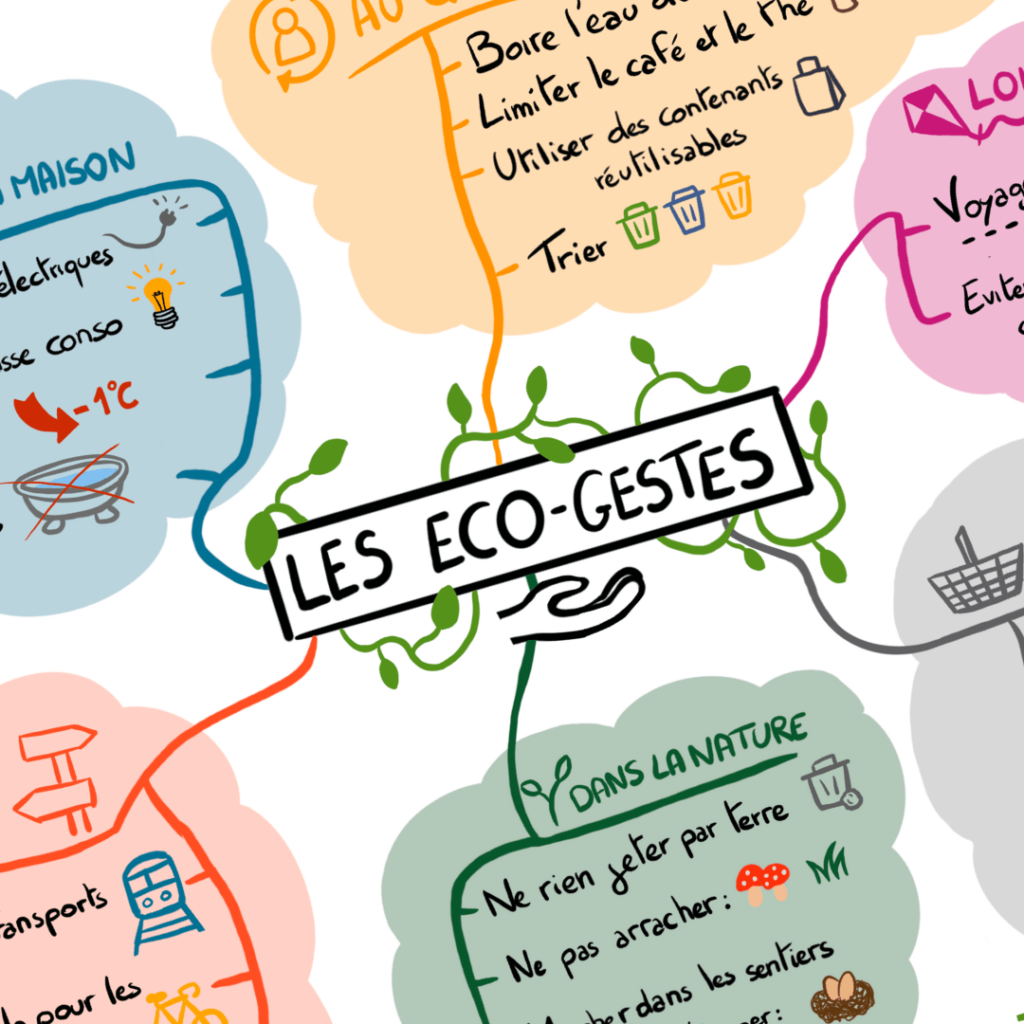 Boire l'eau
Limiter le café et le thé
Utiliser des contenants
réutilisables
Trier
MAISON
électriques
conso
-1°C
Voyag
Evite
LES ECO-GESTES
DANS LA NATURE
Ne rien jeter par terre
Ne pas arracher :
dans les sentiers
ansports
pour les